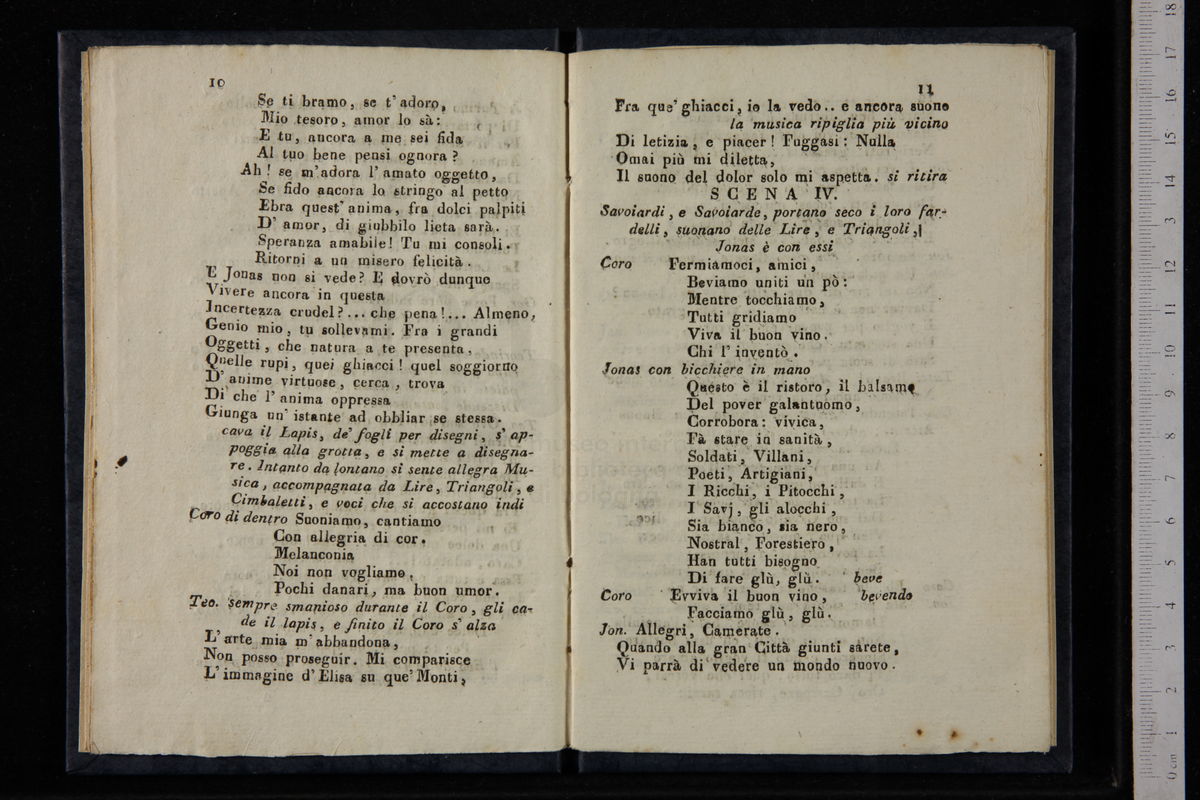 10
Se ti bramo, se t' adoro,
Mio tesoro, amor lo sà:
E tu, ancora a me sei fida
Al tuo bene pensi ognora?
Ah! se m'adora l' amato oggetto,
Se fido ancora lo stringo al petto
Ebra quest' anima, fra dolci palpiti
D' amor, di giubbilo lieta sarà.
Speranza amabile! Tu mi consoli.
Ritorni a un misero felicità.
E Jonas non si vede? E dovrò dunque
Vivere ancora in questa
Incertezza crudel?... che pena!... Almeno,
Genio mio, tu sollevami. Fra i grandi
Oggetti, che natura a te presenta,
Quelle rupi, quei ghiacci! quel soggiorno
D' anime virtuose, cerca, trova
Di che l' anima oppressa
Giunga un' istante ad obbliar se stessa.
cava il Lapis, de' fogli per disegni, s' ap-
poggia alla grotta, e si mette a disegna-
re. Intanto da lontano si sente allegra Mu-
sica, accompagnata da Lire, Triangoli, e
Cimbaletti, e voci che si accostano indi
Coro di dentro Suoniamo, cantiamo
Con allegria di cor.
Melanconia
Noi non vogliamo,
Pochi danari, ma buon umor.
Teo. sempre smanioso durante il Coro, gli ca-
de il lapis, e finito il Coro s' alza
L' arte mia m' abbandona,
Non posso proseguir. Mi comparisce
L' immagine d' Elisa su que' Monti,
11
Fra que' ghiacci, io la vedo.. e ancora suono
la musica ripiglia più vicino
Di letizia, e piacer! Fuggasi: Nulla
Omai più mi diletta,
Il suono del dolor solo mi aspetta. si ritira
SCENA IV.
Savoiardi, e Savoiarde, portano seco i loro far-
delli, suonano delle Lire, e Triangoli,
Jonas è con essi
Coro Fermiamoci, amici,
Beviamo uniti un pò:
Mentre tocchiamo,
Tutti gridiamo
Viva il buon vino.
Chi l' inventò.
Jonas con bicchiere in mano
Questo è il ristoro, il balsamo
Del pover galantuomo,
Corrobora: vivica,
Fà stare in sanità,
Soldati, Villani,
Poeti, Artigiani,
I Ricchi, i Pitocchi,
I Savj, gli alocchi,
Sia bianco, sia nero,
Nostral, Forestiero,
Han tutti bisogno
Di fare glù, glù. beve
Coro Evviva il buon vino, bevendo
Facciamo glù, glù.
Jon. Allegri, Camerate.
Quando alla gran Città giunti sarete,
Vi parrà di vedere un mondo nuovo.